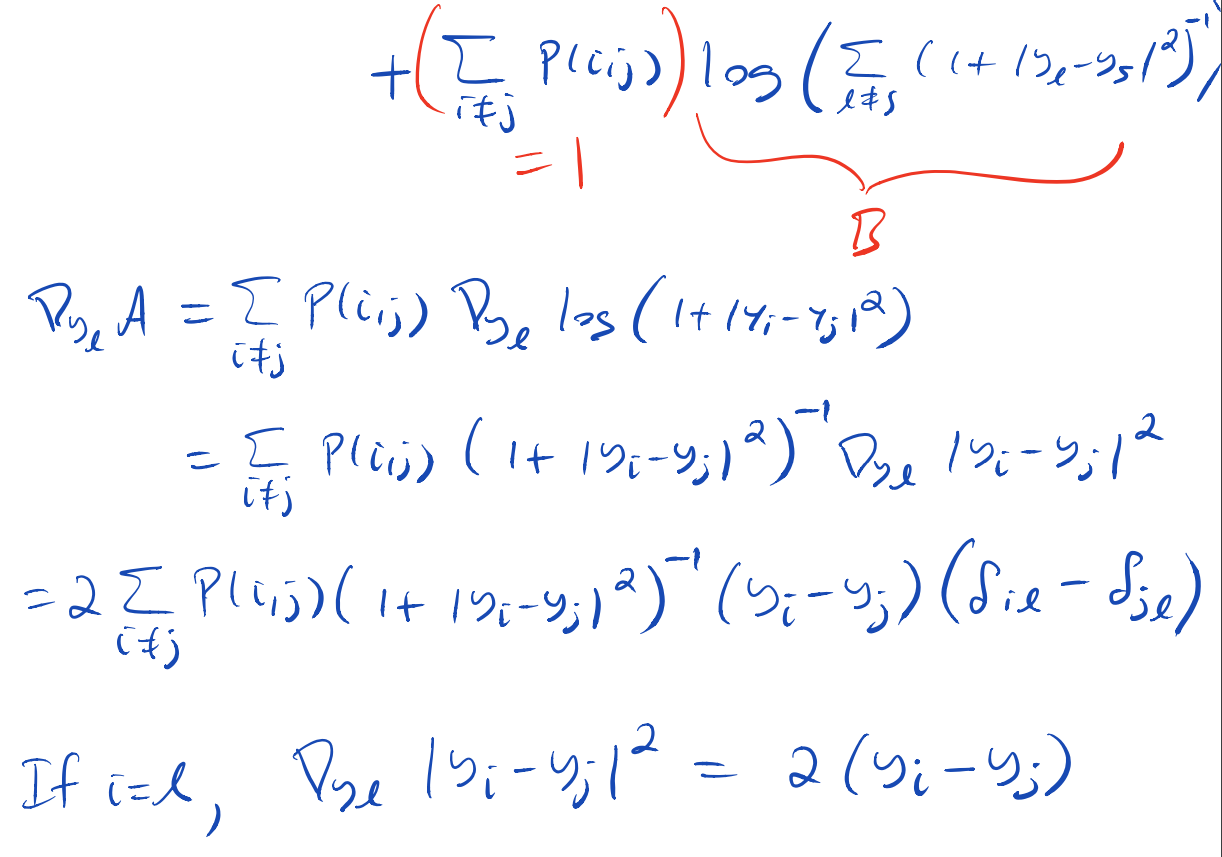 + ( ∑_{i≠j} P(i,j) ) log ( ∑_{ℓ≠s} (1+|y_ℓ-y_s|^2)^{-1} )
= 1
B
∇_{y_ℓ} A = ∑_{i≠j} P(i,j) ∇_{y_ℓ} log ( 1+|y_i-y_j|^2 )
= ∑_{i≠j} P(i,j) ( 1+|y_i-y_j|^2 )^{-1} ∇_{y_ℓ} |y_i-y_j|^2
= 2 ∑_{i≠j} P(i,j) ( 1+|y_i-y_j|^2 )^{-1} (y_i-y_j) (δ_{iℓ} - δ_{jℓ})
If i=ℓ, ∇_{y_ℓ} |y_i-y_j|^2 = 2 (y_i-y_j)